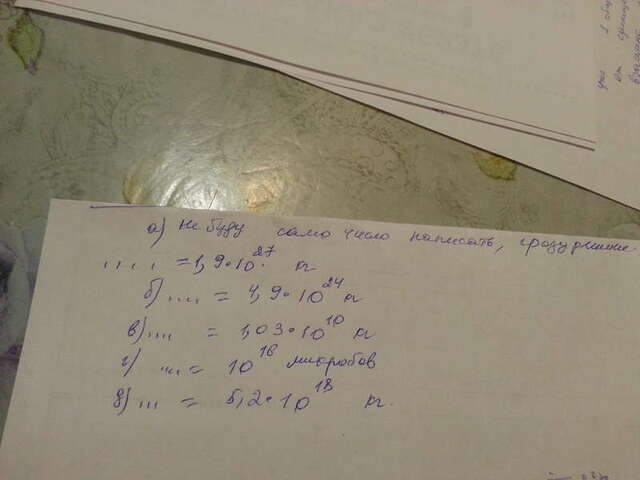 а) не буду само число написать, сразу решение.
.... = 1,9·10²⁷. кг
б) .... = 4,9·10²⁴ кг
в) .... = 1,03·10¹⁰ кг
г) .... = 10¹⁶ микробов
д) ... = 5,2·10¹⁸ кг.